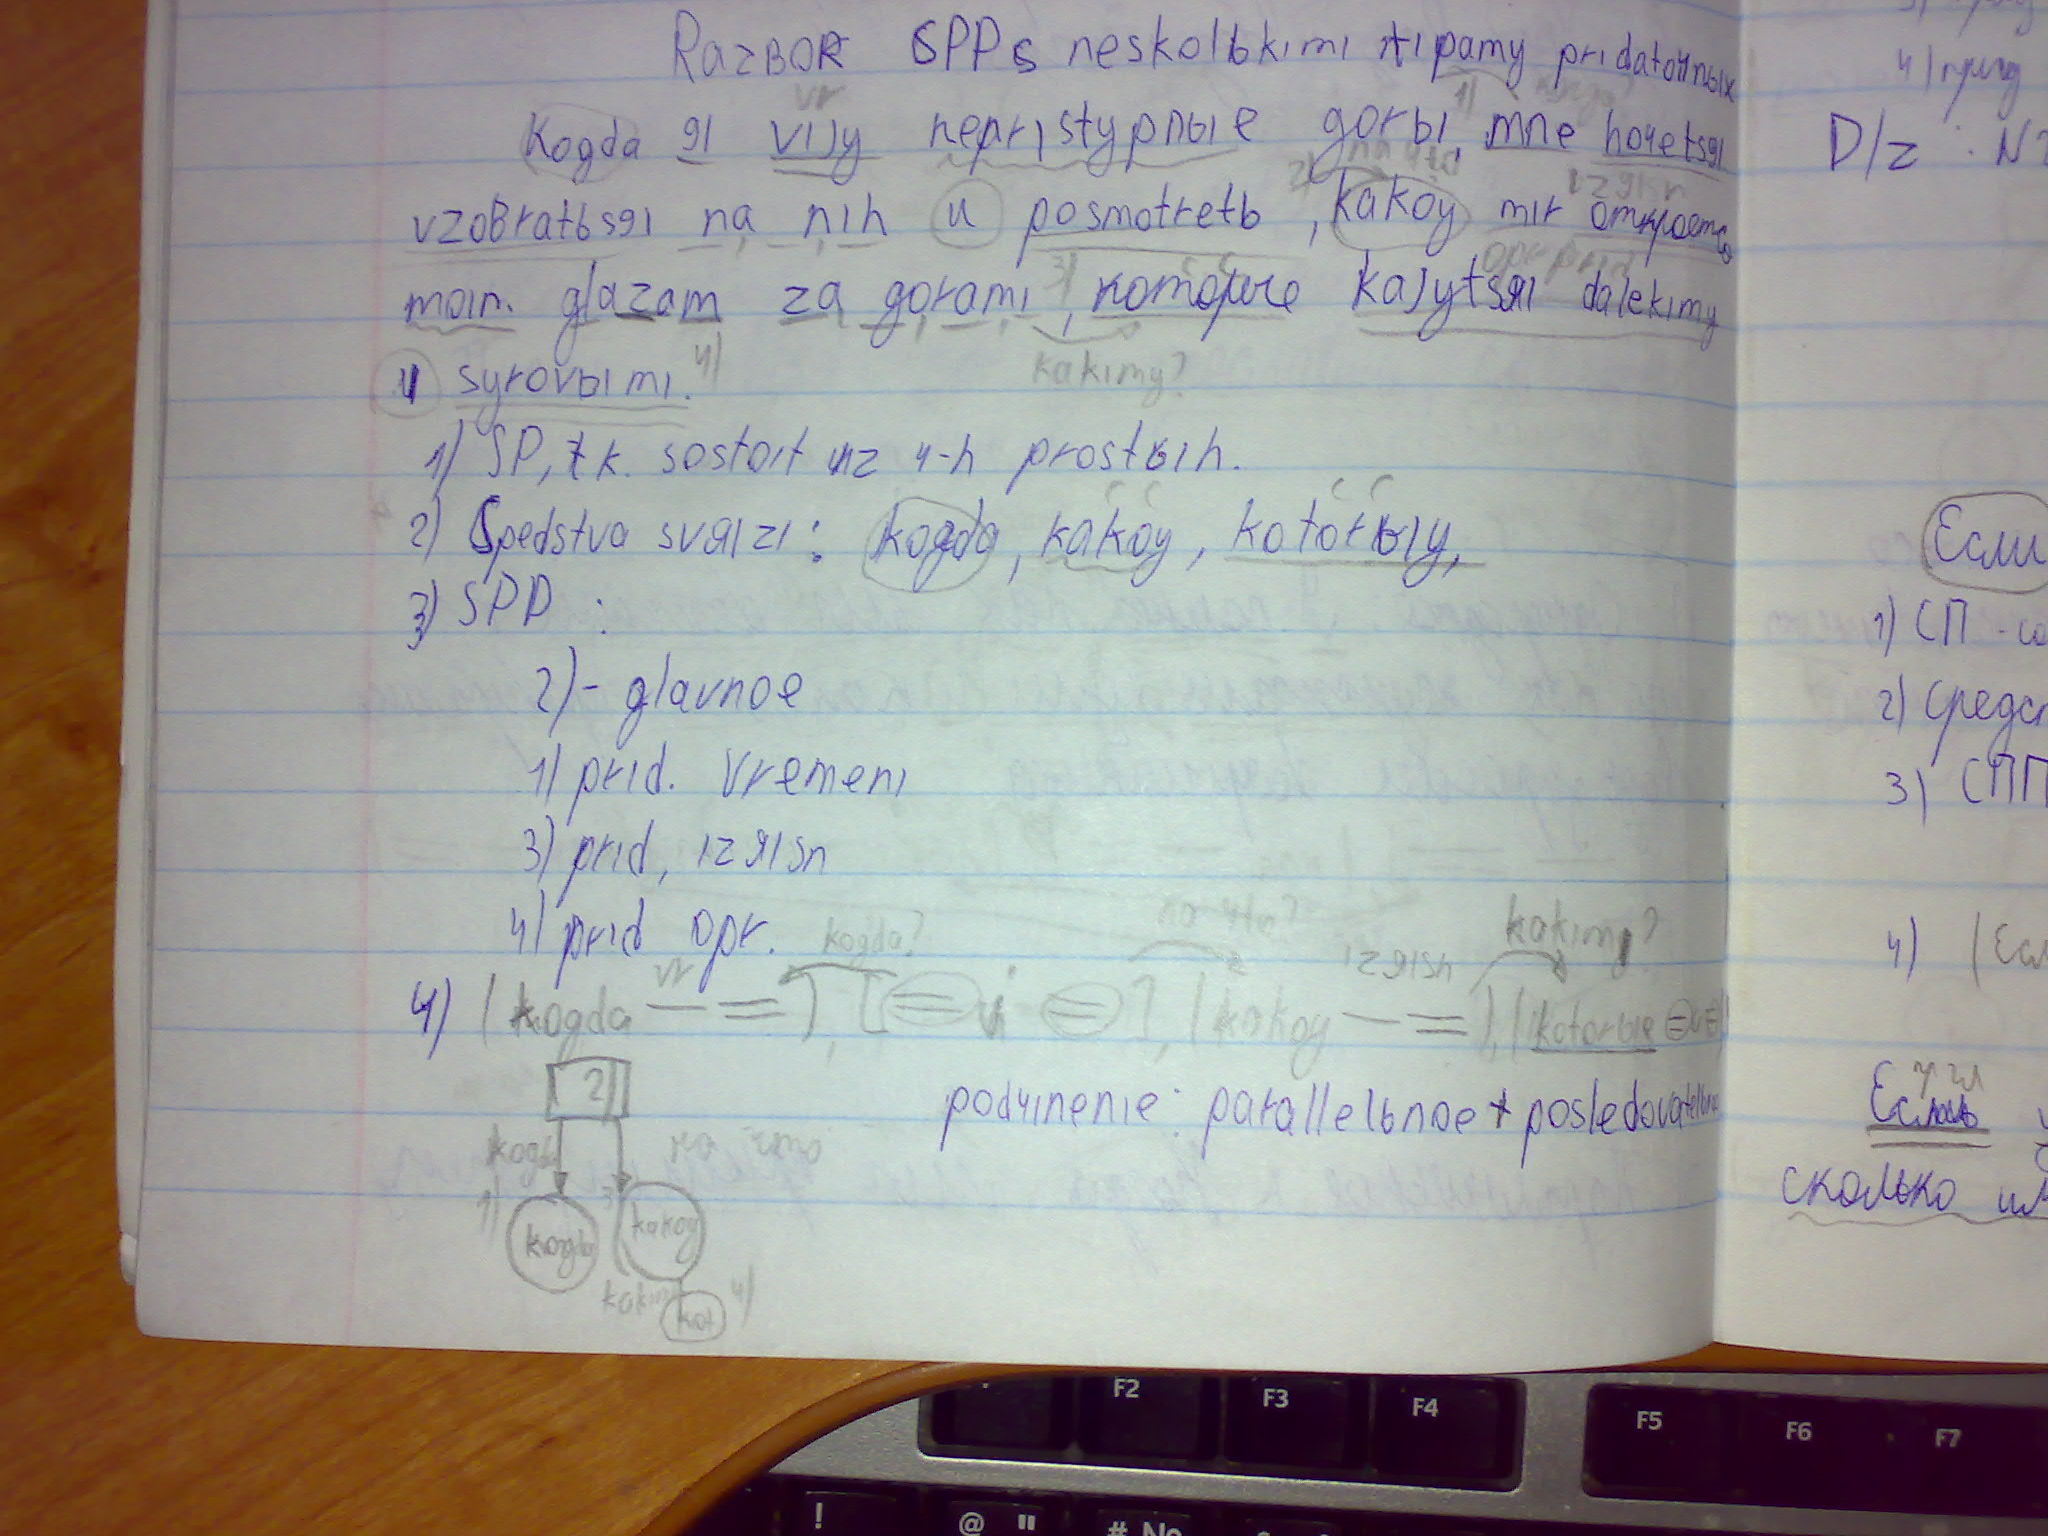 RAZBOR SPP s neskolьkimi tipamy pridatoчnыx
vr
Kogda яI viJy nepristypnыe gorы, mne hoчetsяI
1)
na чto
2)
IzяIsn
vzobratьsяI na nih и posmotretь, kakoy mir откроется
3)
opr prid
moim glazam za gorami, которые kaJytsяI dalekimy
и syrovыmi.
4)
kakimy?
1) SP, t k. sostoit из ч-h prostыih.
2) Spedstva svяIzi: kogda, kakoy, kotorыy,
3) SPP :
2) - glavnoe
1) prid. vremeni
3) prid, izяIsn
4) prid opr.
vr kogda? na чto? izяIsn kakimy?
4) (kogda — =), [= и =], (kakoy — =), (kotorыe = и =)
2)
podчinenie: parallelьnoe + posledovatelьnoe
kogda на что
1) 3)
kogda kakoy
kakimy 4)
kot
4)
D/z : N
Если
1) СП -
2) Средст
3) СПП
4) (Есл
сколько
! @ " # №
F2 F3 F4 F5 F6 F7